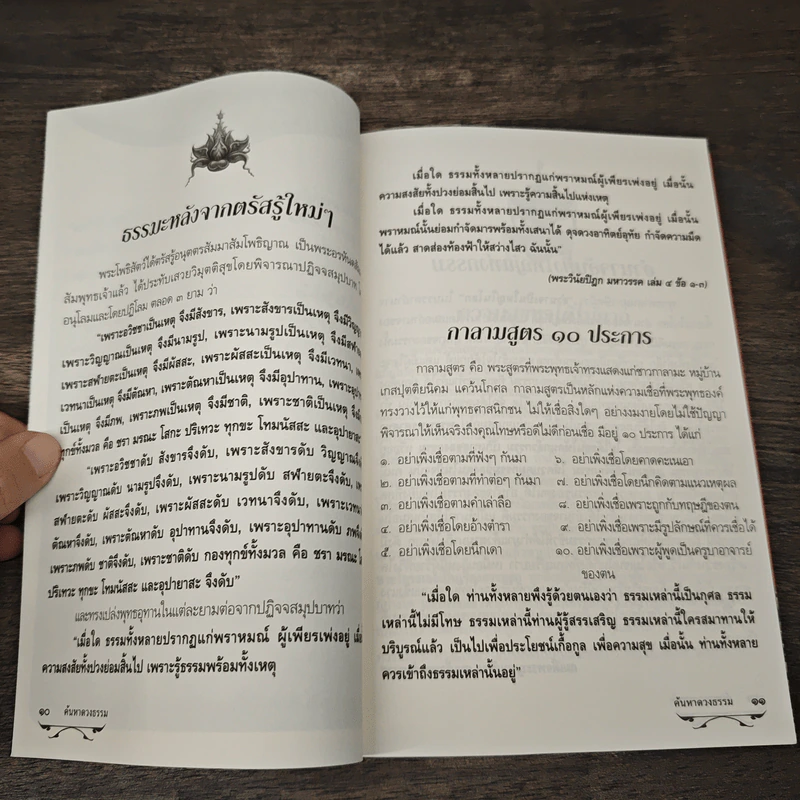 ธรรมะหลังจากตรัสรู้ใหม่ๆ
พระโพธิสัตว์ได้ตรัสรู้อนุตตรสัมมาสัมโพธิญาณ เป็นพระอรหันต
สัมพุทธเจ้าแล้ว ได้ประทับเสวยวิมุตติสุขโดยพิจารณาปฏิจจสมุปบาท
อนุโลมและโดยปฏิโลม ตลอด ๓ ยาม ว่า
“เพราะอวิชชาเป็นเหตุ จึงมีสังขาร, เพราะสังขารเป็นเหตุ จึงมีวิญ
เพราะวิญญาณเป็นเหตุ จึงมีนามรูป, เพราะนามรูปเป็นเหตุ จึงมีสฬาย
เพราะสฬายตะเป็นเหตุ จึงมีผัสสะ, เพราะผัสสะเป็นเหตุ จึงมีเวทนา, เพ
เวทนาเป็นเหตุ จึงมีตัณหา, เพราะตัณหาเป็นเหตุ จึงมีอุปาทาน, เพราะอุปา
เป็นเหตุ จึงมีภพ, เพราะภพเป็นเหตุ จึงมีชาติ, เพราะชาติเป็นเหตุ จึงมี
ทุกข์ทั้งมวล คือ ชรา มรณะ โสกะ ปริเทวะ ทุกขะ โทมนัสสะ และอุปายาสะ
“เพราะอวิชชาดับ สังขารจึงดับ, เพราะสังขารดับ วิญญาณจึง
เพราะวิญญาณดับ นามรูปจึงดับ, เพราะนามรูปดับ สฬายตะจึงดับ, เพ
สฬายตะดับ ผัสสะจึงดับ, เพราะผัสสะดับ เวทนาจึงดับ, เพราะเวทน
ตัณหาจึงดับ, เพราะตัณหาดับ อุปาทานจึงดับ, เพราะอุปาทานดับ ภพจึง
เพราะภพดับ ชาติจึงดับ, เพราะชาติดับ กองทุกข์ทั้งมวล คือ ชรา มรณะ
ปริเทวะ ทุกขะ โทมนัสสะ และอุปายาสะ จึงดับ”
และทรงเปล่งพุทธอุทานในแต่ละยามต่อจากปฏิจจสมุปบาทว่า
“เมื่อใด ธรรมทั้งหลายปรากฏแก่พราหมณ์ ผู้เพียรเพ่งอยู่ เมื่อ
ความสงสัยทั้งปวงย่อมสิ้นไป เพราะรู้ธรรมพร้อมทั้งเหตุ
๑๐ ค้นหาดวงธรรม
เมื่อใด ธรรมทั้งหลายปรากฏแก่พราหมณ์ผู้เพียรเพ่งอยู่ เมื่อนั้น
ความสงสัยทั้งปวงย่อมสิ้นไป เพราะรู้ความสิ้นไปแห่งเหตุ
เมื่อใด ธรรมทั้งหลายปรากฏแก่พราหมณ์ผู้เพียรเพ่งอยู่ เมื่อนั้น
พราหมณ์นั้นย่อมกำจัดมารพร้อมทั้งเสนาได้ ดุจดวงอาทิตย์อุทัย กำจัดความมืด
ได้แล้ว สาดส่องท้องฟ้าให้สว่างไสว ฉันนั้น”
(พระวินัยปิฎก มหาวรรค เล่ม ๔ ข้อ ๑-๓)
กาลามสูตร ๑๐ ประการ
กาลามสูตร คือ พระสูตรที่พระพุทธเจ้าทรงแสดงแก่ชาวกาลามะ หมู่บ้าน
เกสปุตติยนิคม แคว้นโกศล กาลามสูตรเป็นหลักแห่งความเชื่อที่พระพุทธองค์
ทรงวางไว้ให้แก่พุทธศาสนิกชน ไม่ให้เชื่อสิ่งใดๆ อย่างงมงายโดยไม่ใช้ปัญญา
พิจารณาให้เห็นจริงถึงคุณโทษหรือดีไม่ดีก่อนเชื่อ มีอยู่ ๑๐ ประการ ได้แก่
๑. อย่าเพิ่งเชื่อตามที่ฟังๆ กันมา ๖. อย่าเพิ่งเชื่อโดยคาดคะเนเอา
๒. อย่าเพิ่งเชื่อตามที่ทำต่อๆ กันมา ๗. อย่าเพิ่งเชื่อโดยนึกคิดตามแนวเหตุผล
๓. อย่าเพิ่งเชื่อตามคำเล่าลือ ๘. อย่าเพิ่งเชื่อเพราะถูกกับทฤษฎีของตน
๔. อย่าเพิ่งเชื่อโดยอ้างตำรา ๙. อย่าเพิ่งเชื่อเพราะมีรูปลักษณ์ที่ควรเชื่อได้
๕. อย่าเพิ่งเชื่อโดยนึกเดา ๑๐. อย่าเพิ่งเชื่อเพราะผู้พูดเป็นครูบาอาจารย์
ของตน
“เมื่อใด ท่านทั้งหลายพึงรู้ด้วยตนเองว่า ธรรมเหล่านี้เป็นกุศล ธรรม
เหล่านี้ไม่มีโทษ ธรรมเหล่านี้ท่านผู้รู้สรรเสริญ ธรรมเหล่านี้ใครสมาทานให้
บริบูรณ์แล้ว เป็นไปเพื่อประโยชน์เกื้อกูล เพื่อความสุข เมื่อนั้น ท่านทั้งหลาย
ควรเข้าถึงธรรมเหล่านั้นอยู่”
ค้นหาดวงธรรม ๑๑